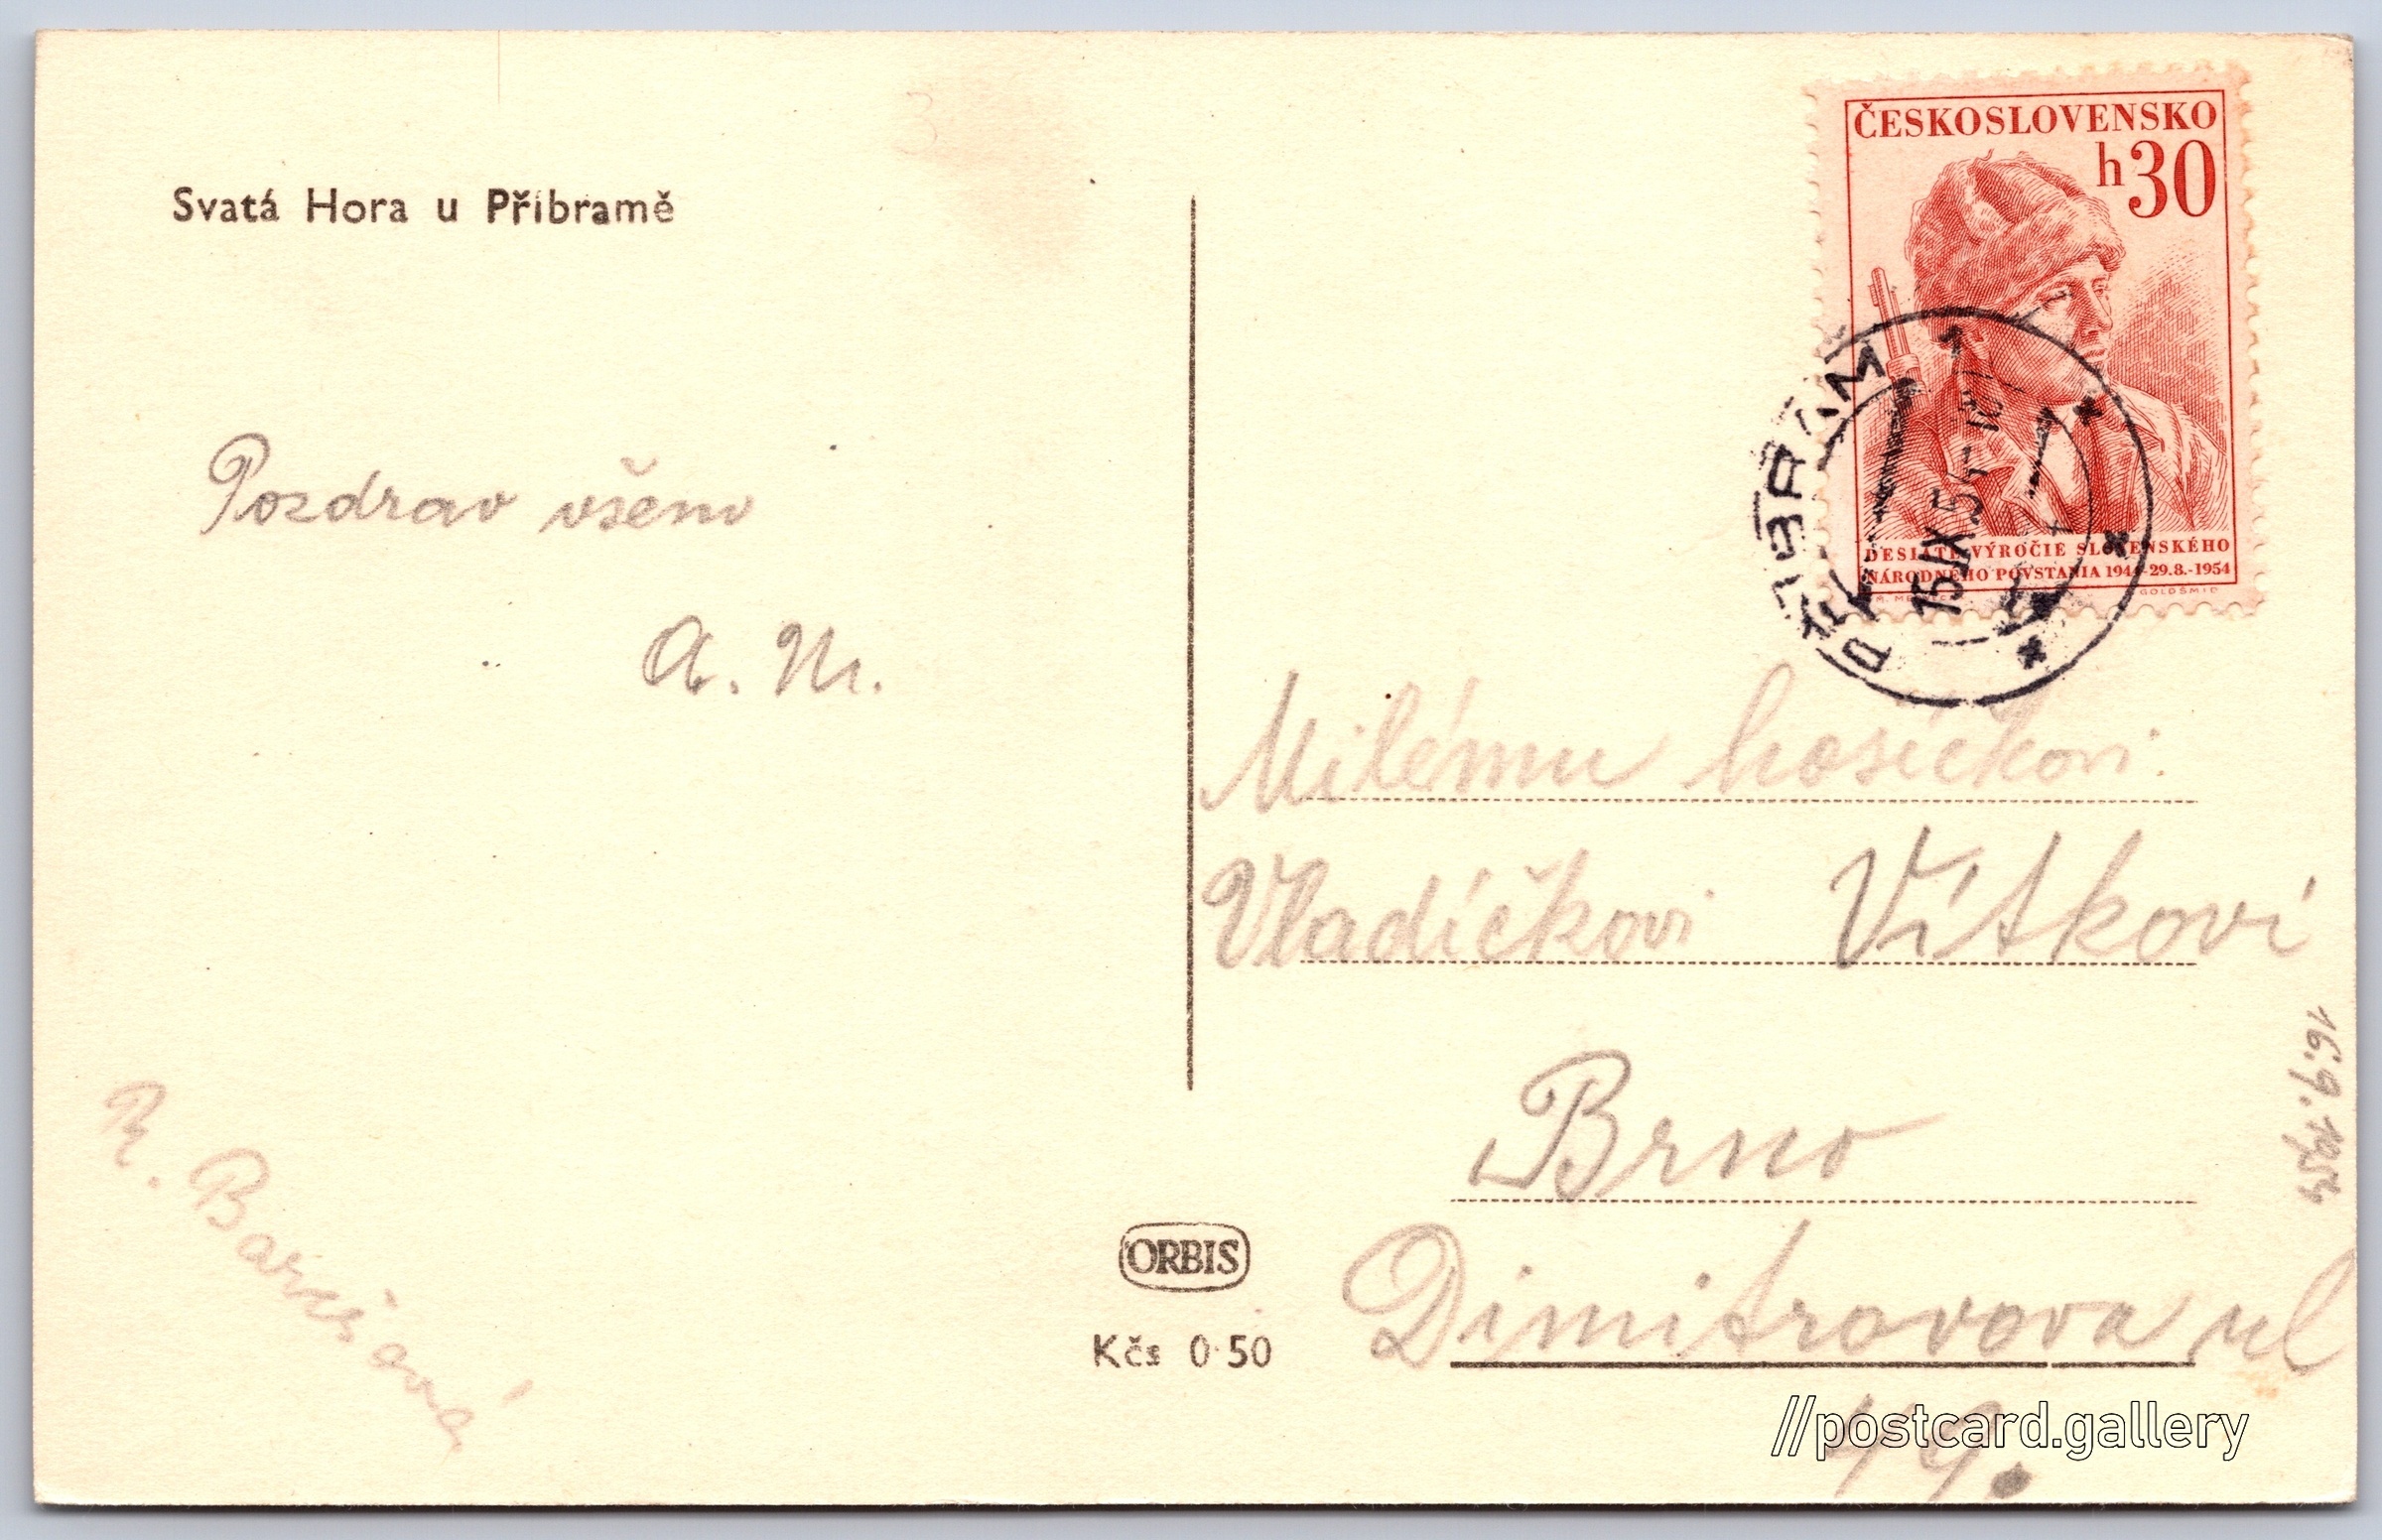 Svatá Hora u Příbramě
ČESKOSLOVENSKO
h 30
DESIATE VÝROČIE SLOVENSKÉHO
NÁRODNÉHO POVSTANIA 1944-29.8.-1954
GOLDŠMID
PŘÍBRAM 1
15.IX.54-18
Pozdrav všem
A. M.
R.
Milému hošíčkovi
Vladíčkovi Vítkovi
Brno
Dimitrovova ul
49.
16.9.1954
ORBIS
Kčs 0·50
//postcard.gallery